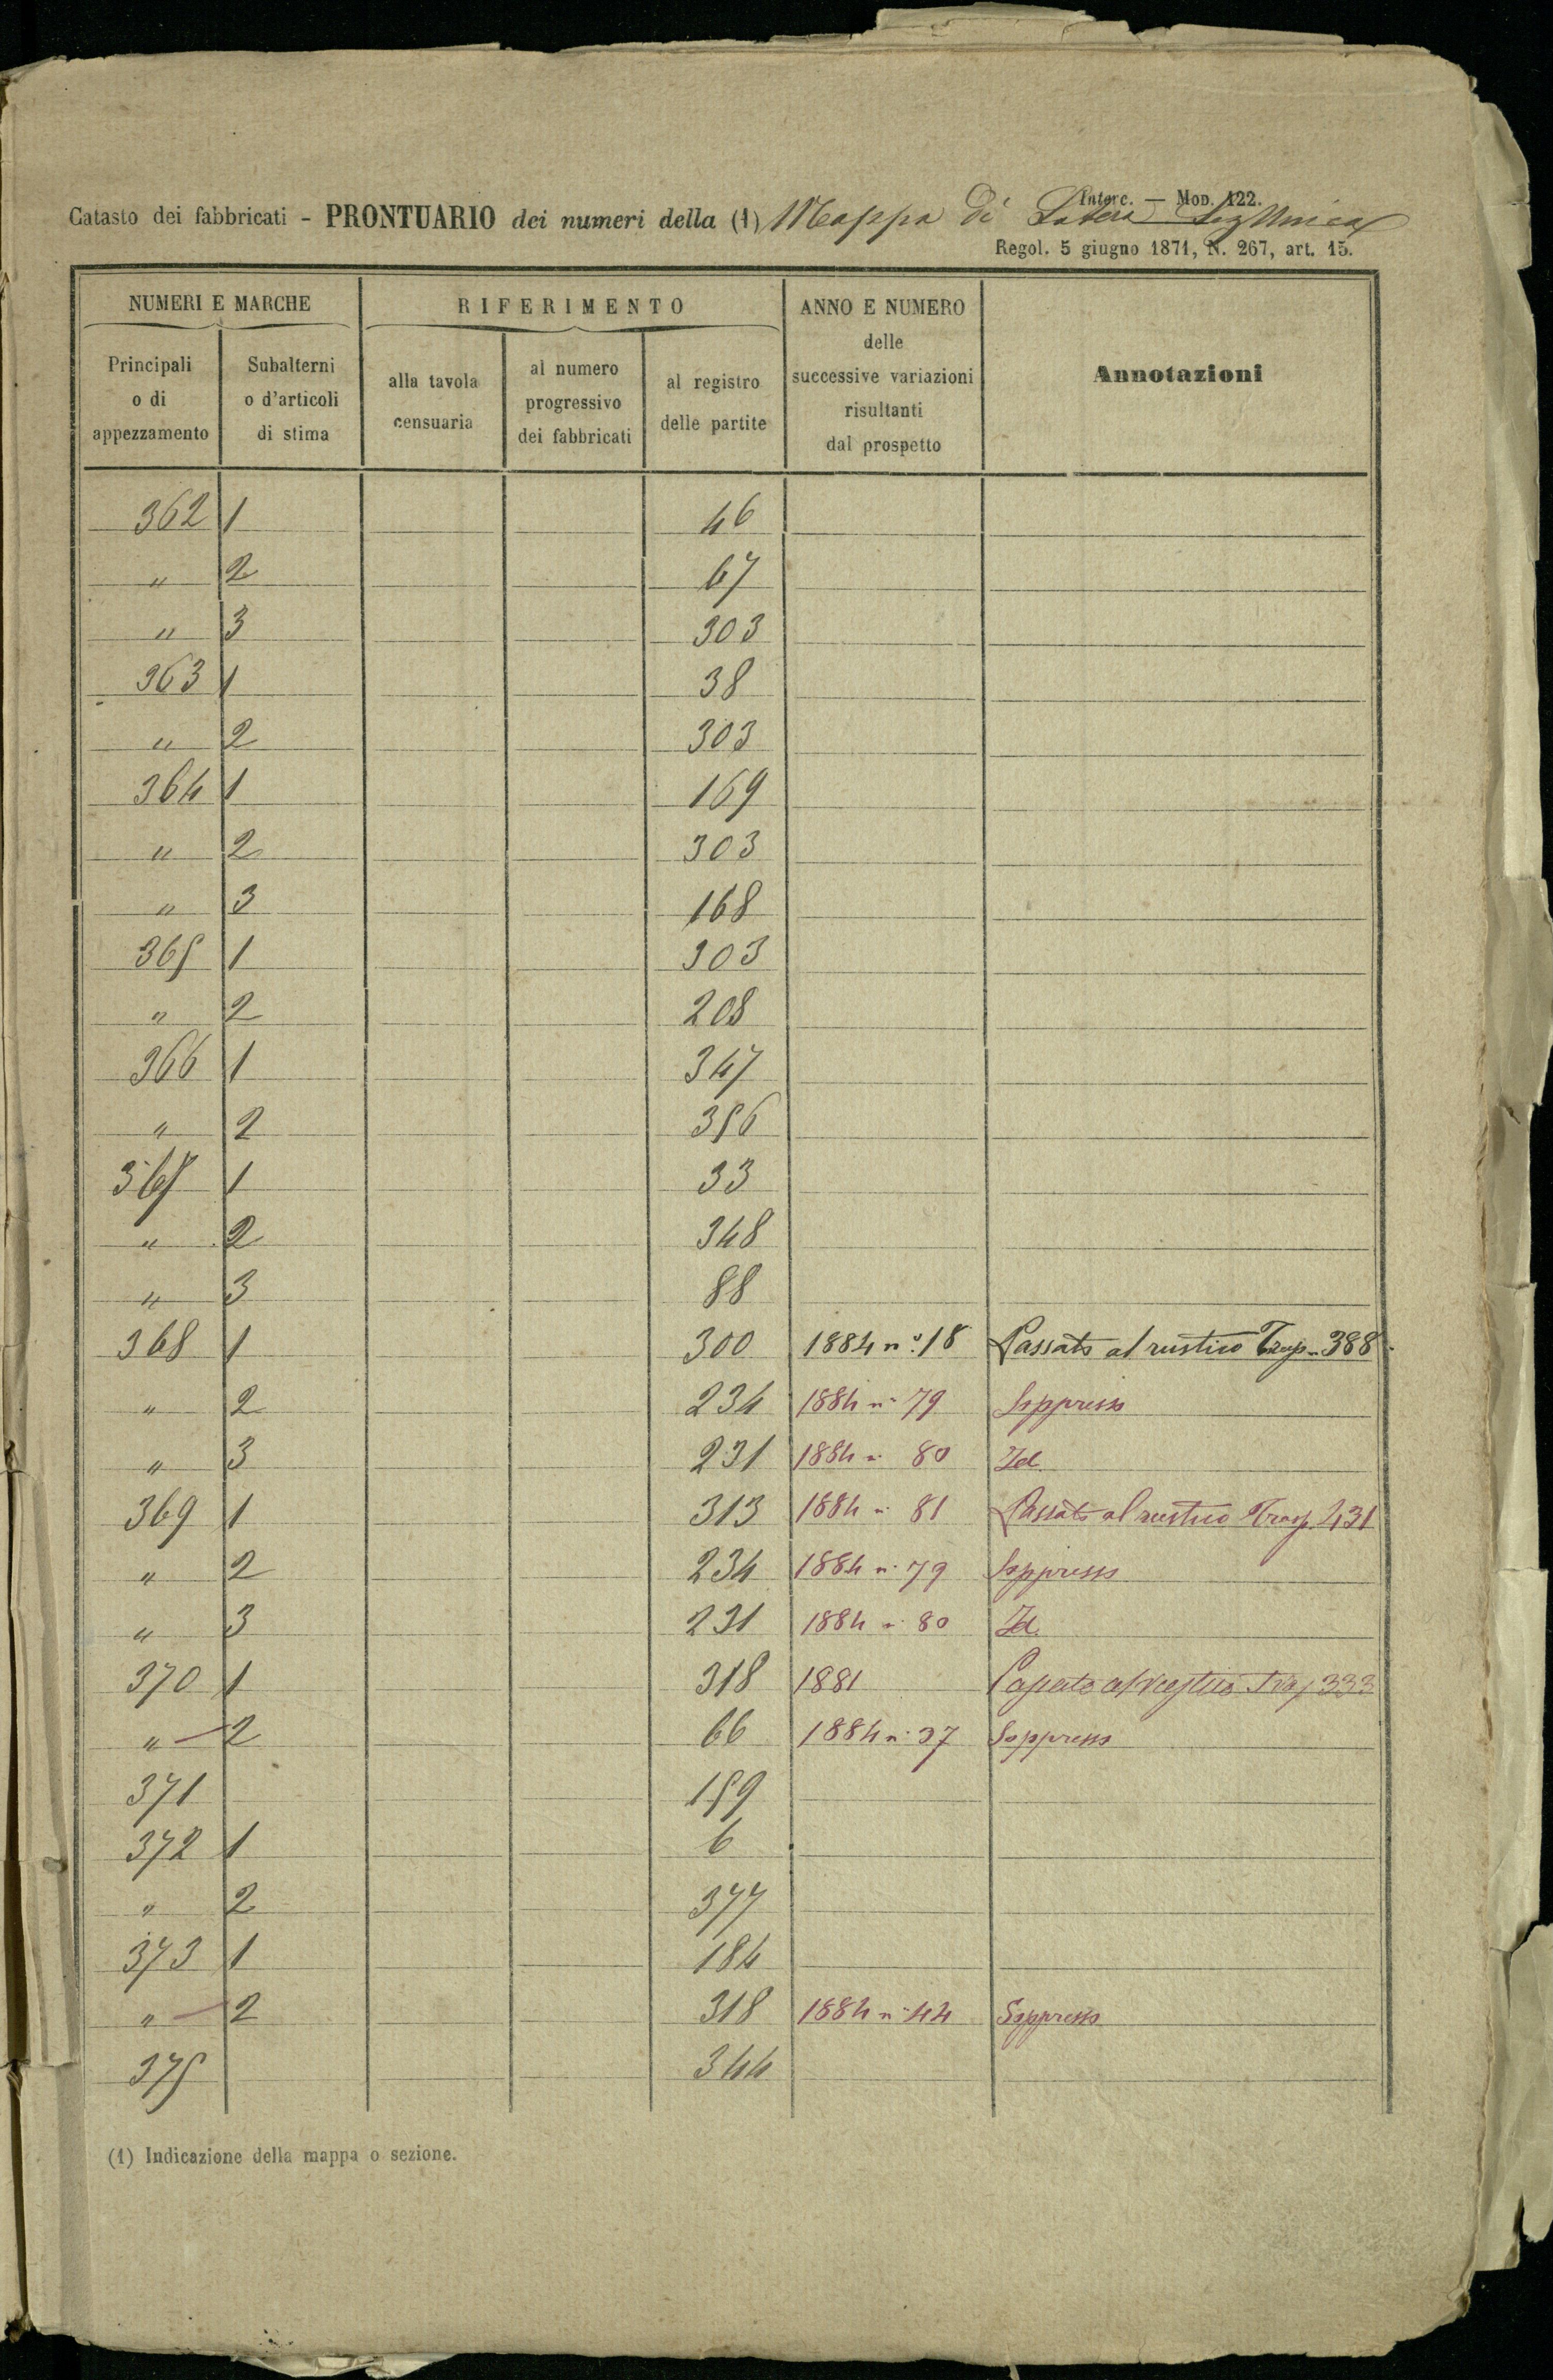 Interc. — Mod. 122.
Catasto dei fabbricati - PRONTUARIO dei numeri della (1) Mappa di Latera Sez Unica
Regol. 5 giugno 1871, N. 267, art. 15.
NUMERI E MARCHE RIFERIMENTO ANNO E NUMERO delle successive variazioni risultanti dal prospetto Annotazioni
Principali o di appezzamento Subalterni o d'articoli di stima alla tavola censuaria al numero progressivo dei fabbricati al registro delle partite
362 1 46
" 2 67
" 3 303
363 1 38
" 2 303
364 1 169
" 2 303
" 3 168
365 1 303
" 2 208
366 1 347
" 2 356
367 1 33
" 2 348
" 3 88
368 1 300 1884 n° 18 Passato al rustico Trasp. 388
" 2 234 1884 n° 79 Soppresso
" 3 231 1884 n° 80 Id.
369 1 313 1884 n° 81 Passato al rustico Trasp. 431
" 2 234 1884 n° 79 Soppresso
" 3 231 1884 n° 80 Id.
370 1 318 1881 Passato al rustico Tras 333
" 2 66 1884 n° 37 Soppresso
371 159
372 1 6
" 2 377
373 1 184
" 2 318 1884 n° 44 Soppresso
375 344
(1) Indicazione della mappa o sezione.